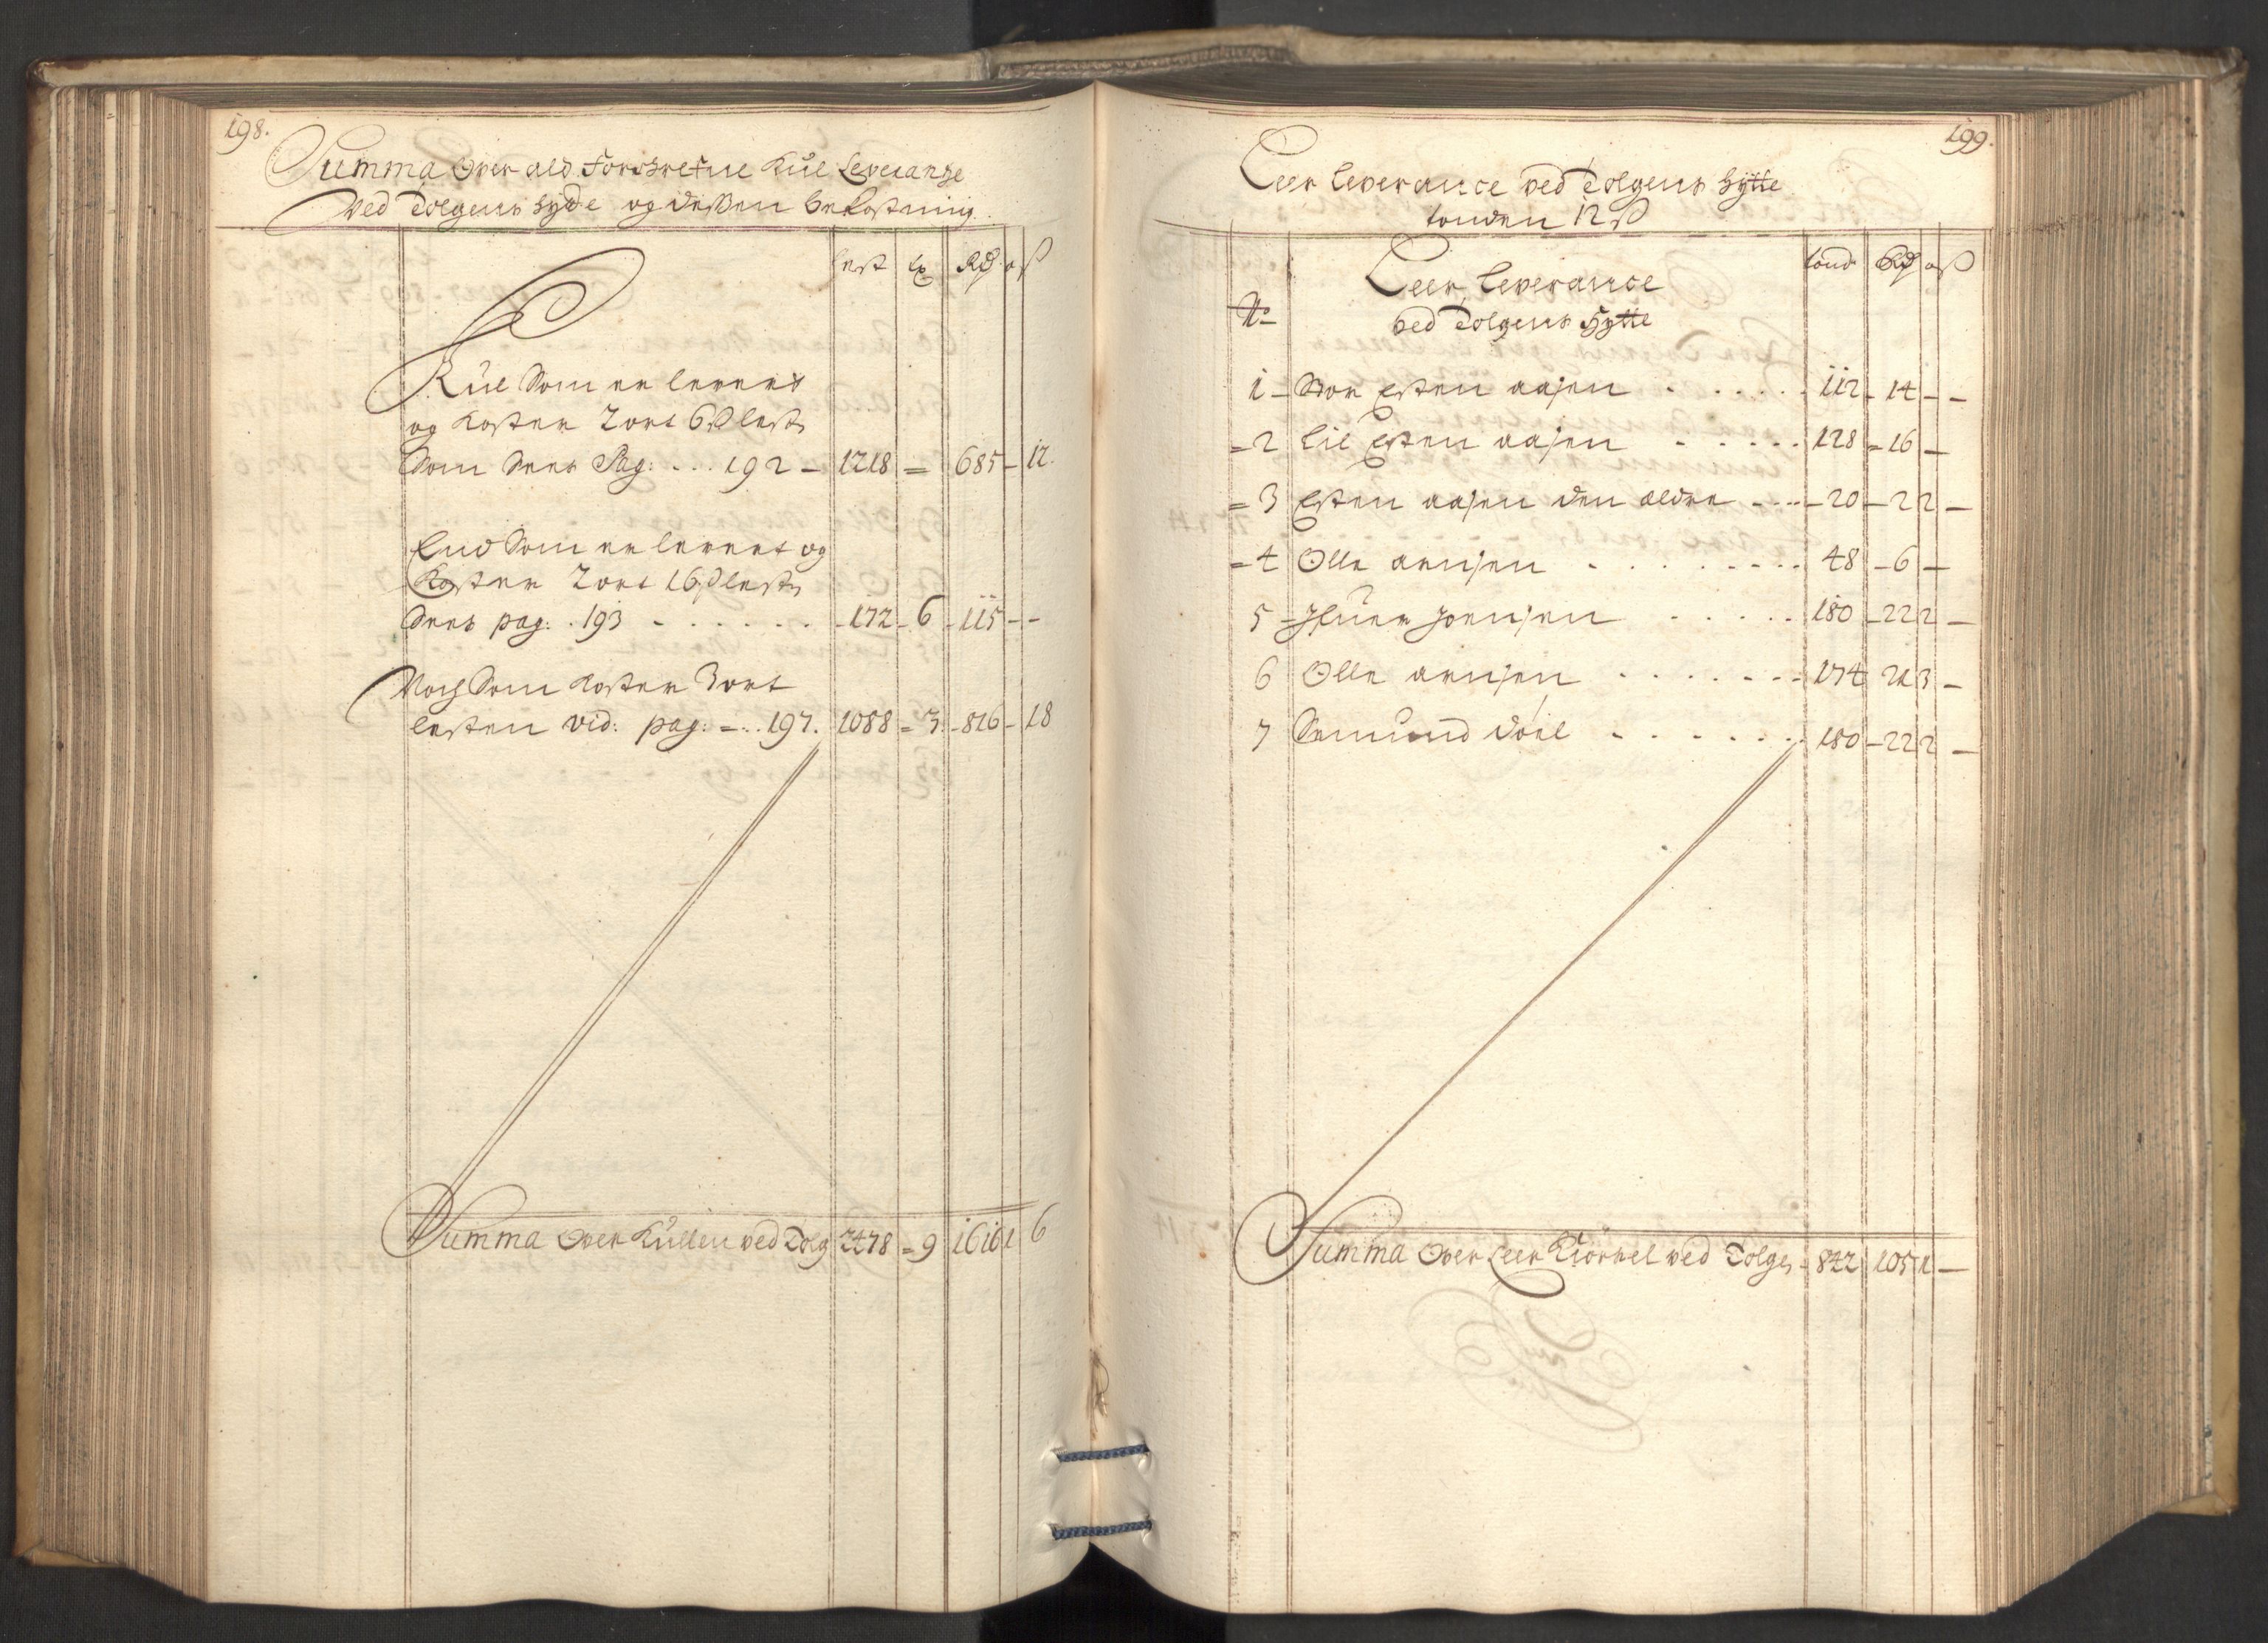 198.
Summa Over ald Forskrefne Kul Leverantze
Ved Tolgens hytte og dessen bekostning
lest lr Rd o ß
Kul Som er leveret
og koster 2 ort 6 ß lest
Som Sees Pag: ... 192 - 1218 = 685 - 12.
End Som er leveret og
Koster 2 ort 16 ß lest
Sees pag: . 193 - 172 - 6 - 115 - -
Noch Som koster 3 ort
lesten vid: pag: = ... 197. 1088 = 3 - 816 - 18
Summa Over Kullen ved Tolg 2478 = 9 1616 1 6
199.
Leer Leverance ved Tolgens hytte
tonden 12 ß
Leer Leverance
ved Tolgens Hytte
No tond Rd o ß
1 - Stor Esten aasen . . . . . . 112 - 14 - -
= 2 Lil Esten aasen - . . . . 128 = 16 -
= 3 Esten aasen den eldre - ... - 20 - 2 2 -
= 4 Olle arnsen . . . . . . . 48 - 6 -
5 - Ifuer Joensen . . . . . 180 - 22 2 -
6 Olle arnsen . . . . . . . 174 21 3 -
7 Semund doel . . . . . . 180 - 22 2 -
Summa Over Leer Kiörsel ved Tolgen - 842 105 1 -